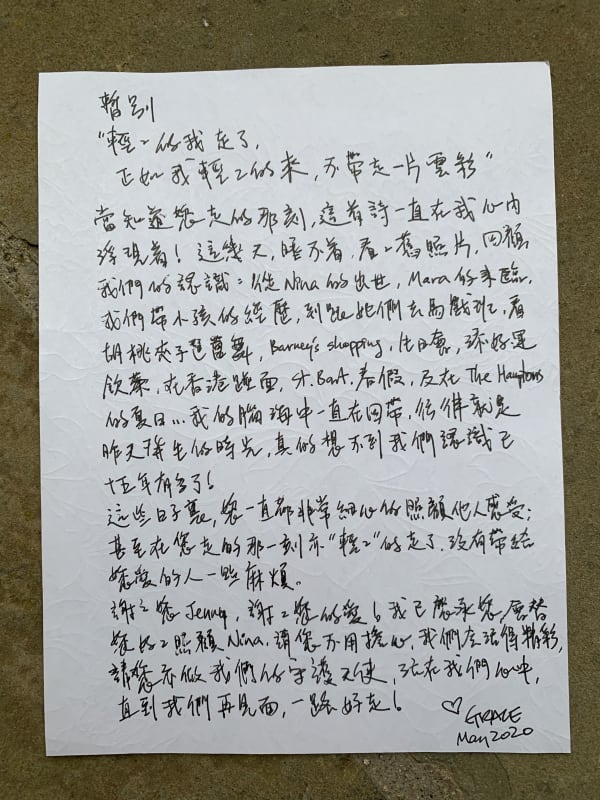 暫別
"輕輕的我走了,
正如我輕輕的來,不帶走一片雲彩"
當知道您走的那刻,這首詩一直在我心內
浮現着!這幾天,睡不着,看看舊照片,回顧
我們的認識:從Nina的出世,Mara的來臨,
我們帶小孩的經歷,到跟她們去馬戲班,看
胡桃夾子芭蕾舞,Barney's shopping,
飲茶,在香港蹤面,St. Bart.春假,及在The Hamptons
的夏日...我的腦海中一直在回帶,彷彿就是
昨天發生的時光,真的想不到我們認識已
十五年有多了!
這些日子裏,您一直都非常細心的照顧他人感受;
甚至在您走的那一刻亦"輕輕"的走了,沒有帶給
您愛的人一些麻煩。
謝謝您Jenny,謝謝您的愛!我已應承您,會替
您好好照顧Nina,請您不用擔心,我們在活得精彩,
請您亦做我們的守護天使,活在我們心中,
直到我們再見面,一路好走!
♡ GRACE
May 2020